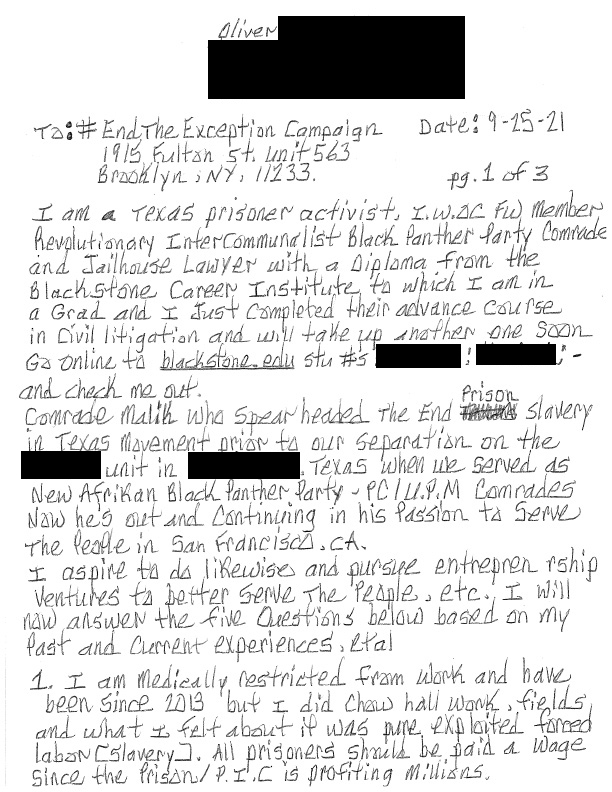 Oliver
To: # End The Exception Campaign Date: 9-25-21
1915 Fulton St. Unit 563
Brooklyn, NY, 11233. pg. 1 of 3
I am a Texas prisoner activist, I.W.OC FW Member
Revolutionary InterCommunalist Black Panther Party Comrade
and Jailhouse Lawyer with a Diploma from the
Blackstone Career Institute to which I am in
a Grad and I Just Completed their advance Course
in Civil litigation and will take up another one Soon
Go online to blackstone.edu stu #s ; ; -
and check me out.
Prison
Comrade Malik who Spear headed The End slavery
in Texas Movement prior to our Separation on the
unit in . Texas when we served as
New Afrikan Black Panther Party - PC/U.P.M Comrades
Now he's out and Continuing in his Passion to Serve
The People in San Francisco, CA.
I aspire to do likewise and pursue entrepren rship
Ventures to better Serve The People, etc. I will
now answer the five Questions below based on my
Past and Current experiences, etal
1. I am medically restricted from Work and have
been since 2013 but I did Chow hall Work, fields,
and what I felt about it was pure exploited forced
labor [Slavery]. All prisoners should be paid a Wage
Since the Prison/P.I.C is profiting Millions.